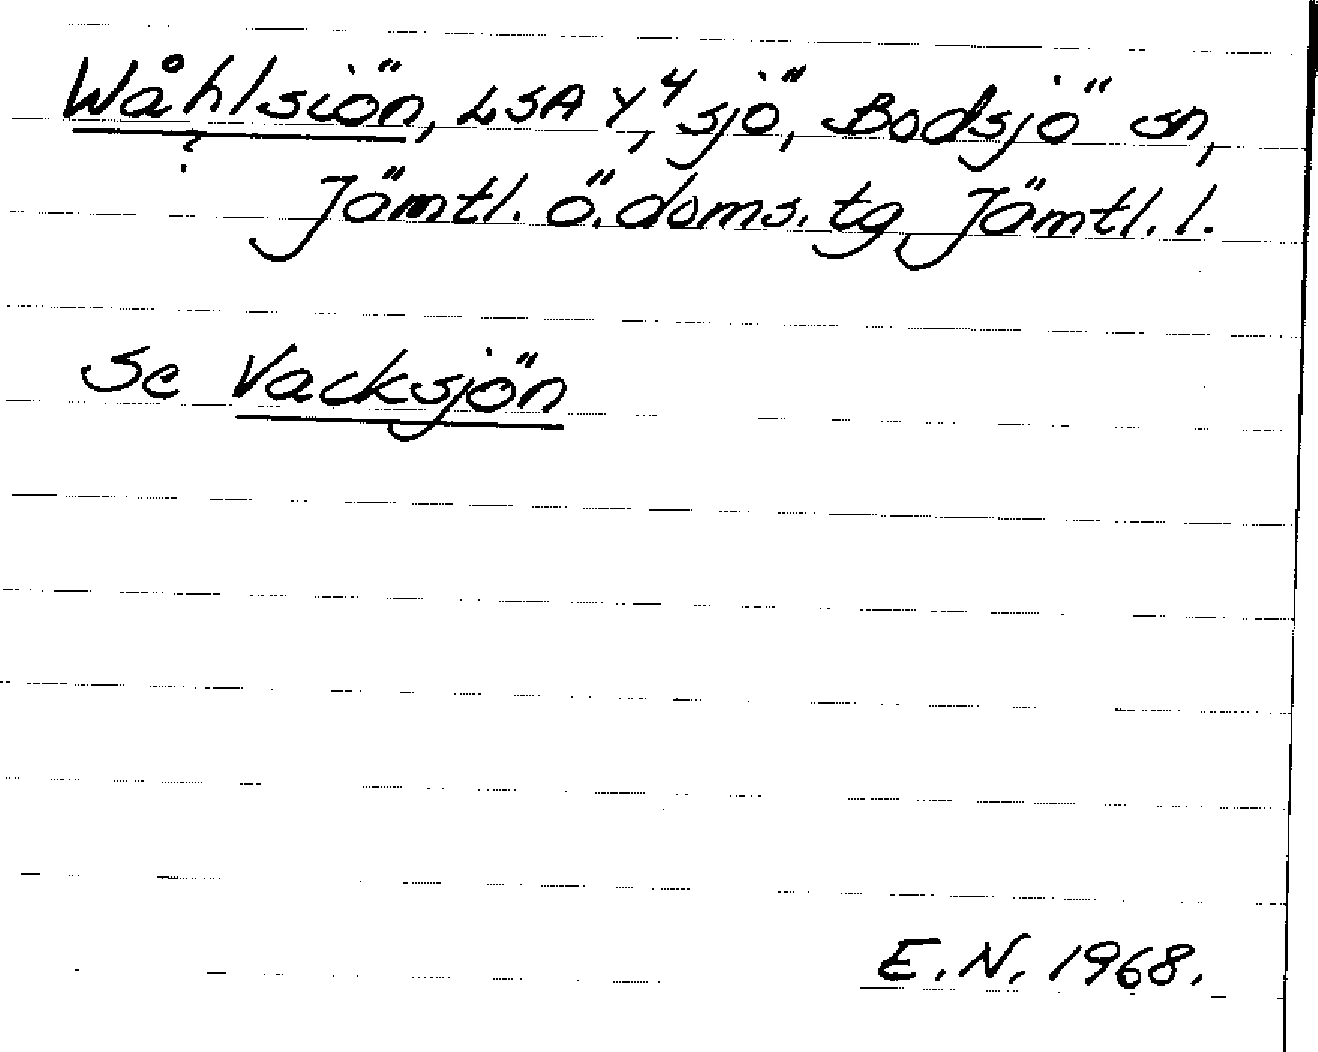 Wåhlsiön, LSA Y⁴, sjö, Bodsjö sn,
?
Jämtl. ö. doms. tg Jämtl. l.
Se Vacksjön
E.N. 1968.